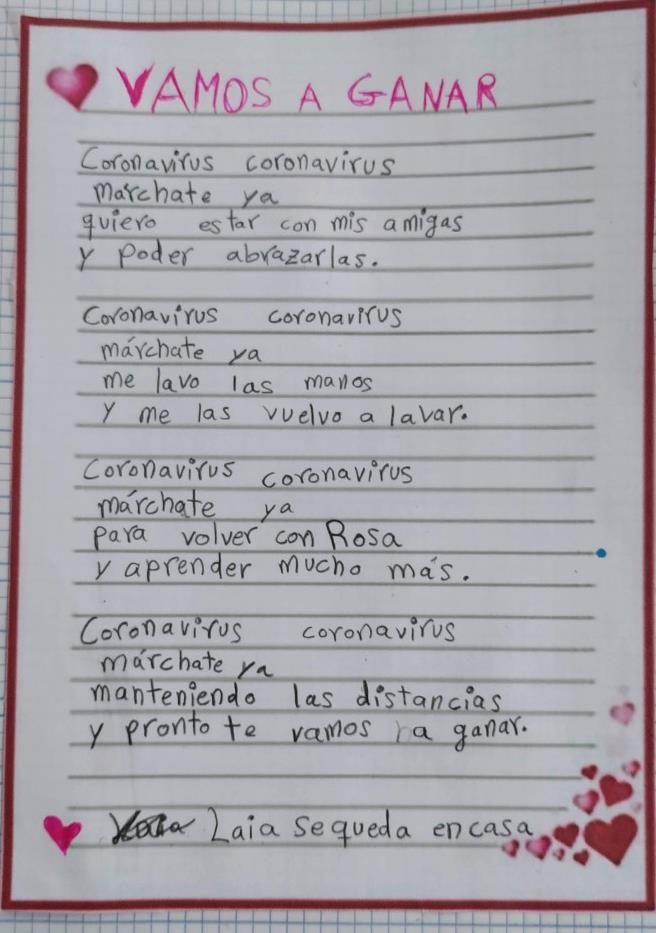 VAMOS A GANAR
Coronavirus coronavirus
marchate ya
quiero estar con mis amigas
y poder abrazarlas.
Coronavirus coronavirus
márchate ya
me lavo las manos
y me las vuelvo a lavar.
Coronavirus coronavirus
márchate ya
para volver con Rosa
y aprender mucho más.
Coronavirus coronavirus
márchate ya
manteniendo las distancias
y pronto te vamos a ganar.
Laia se queda en casa